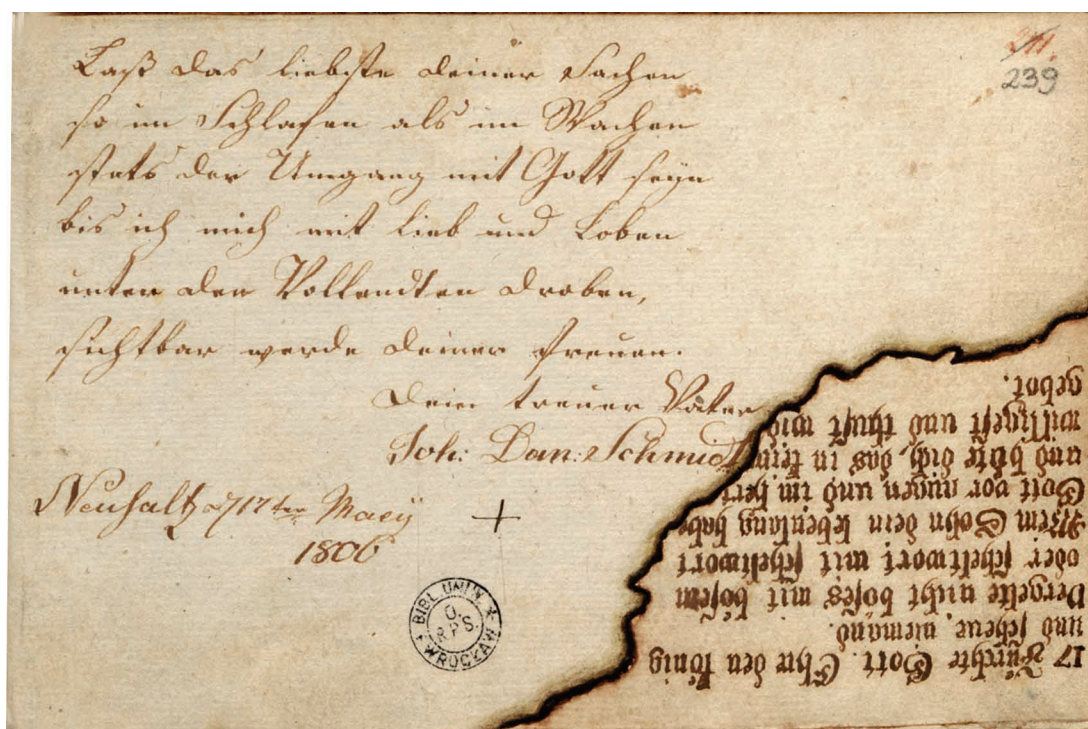 Laß das liebste deiner Sachen
so im Schlafen als im Wachen
stets der Umgang mit Gott seyn
bis ich mich mit Lieb und Loben
unter den Vollendten droben,
sichtbar werde deiner freuen.
Dein treuer Vater
Joh: Dan: Schmidt
Neusaltz d 17ten Maey
1806
239
BIBL. UNIW.
O.
R.P.S.
WROCŁAW
17 Fürchte Gott. Ehr den könig
und scheue niemand.
Vergelte nicht böses mit bösem
oder scheltwort mit scheltwort
Mein Sohn dein lebenlang habe
Gott vor augen und im hert
und hüte dich, das in kein
willigest und thust wid
gebot.